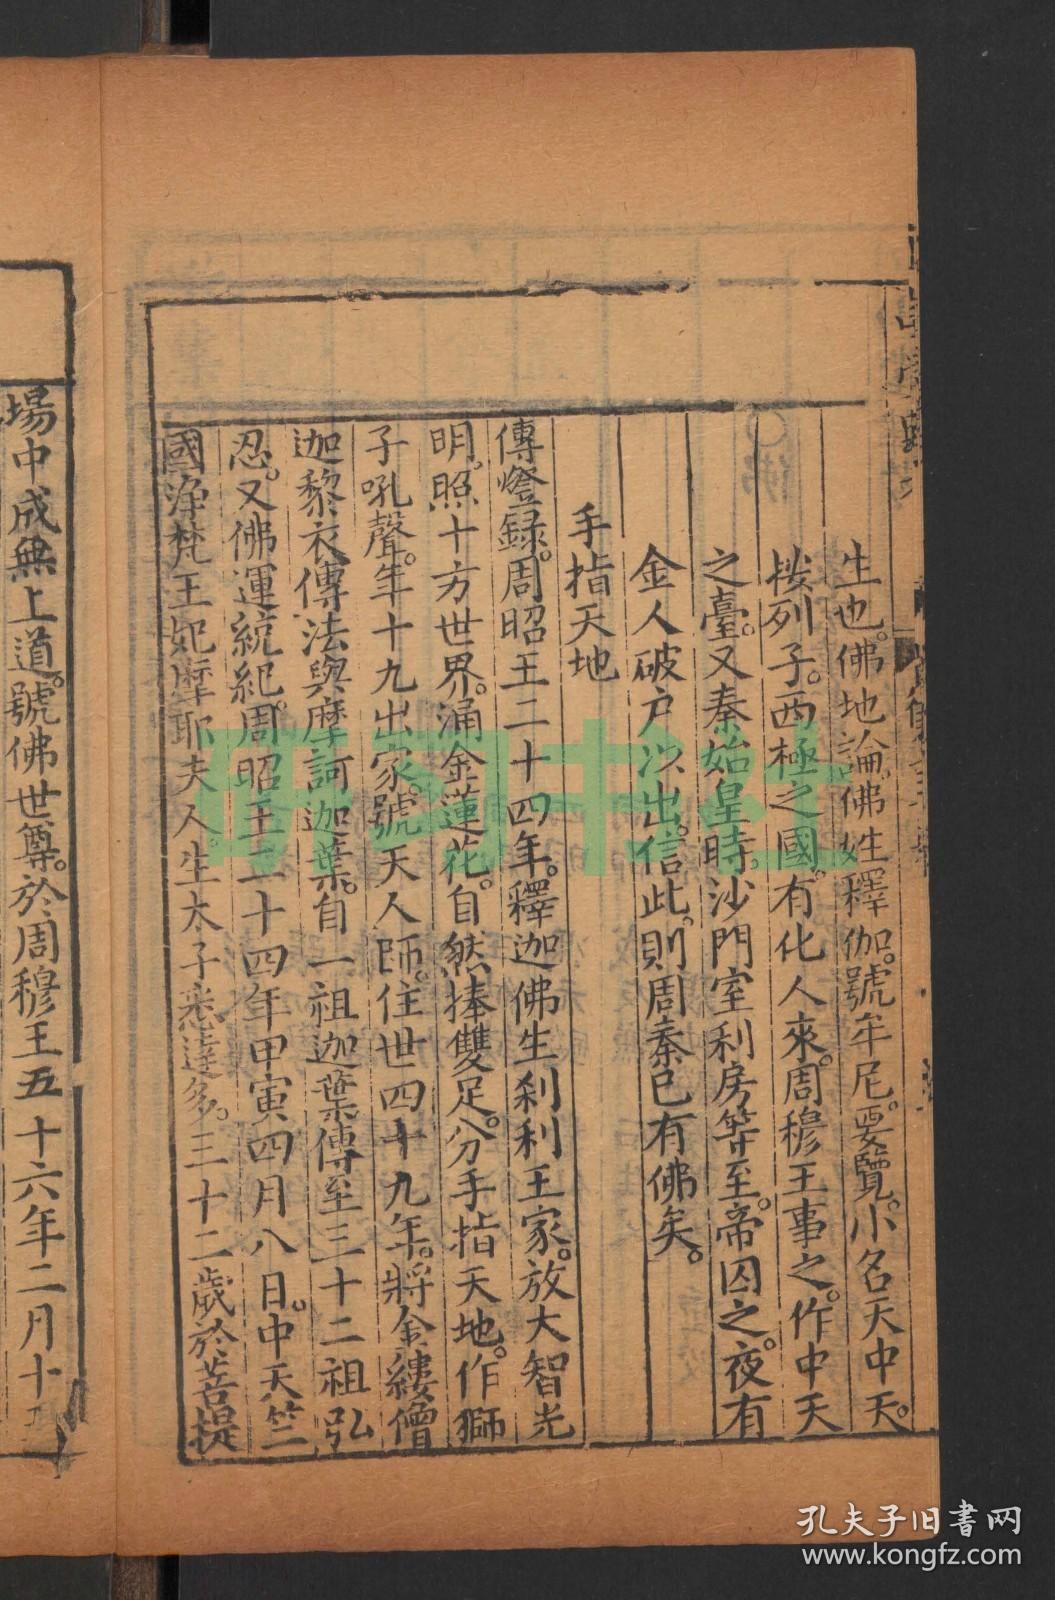 生也。佛地論。佛姓釋伽。號牟尼。要覽。小名天中天。
按列子。西極之國。有化人來。周穆王事之。作中天
之臺。又秦始皇時。沙門室利房等至。帝囚之。夜有
金人破户以出。信此。則周秦已有佛矣。
手指天地
傳燈録。周昭王二十四年。釋迦佛生刹利王家。放大智光
明。照十方世界。涌金蓮花。自然捧雙足。分手指天地。作獅
子吼聲。年十九出家。號天人師。住世四十九年。將金縷僧
迦黎衣。傳法與摩訶迦葉。自一祖迦葉傳至三十二祖弘
忍。又佛運統紀。周昭王二十四年甲寅四月八日。中天竺
國淨梵王妃摩耶夫人。生太子悉達多。三十二歲於菩提
場中成無上道。號佛世尊。於周穆王五十六年二月十五
孔夫子旧書网
www.kongfz.com